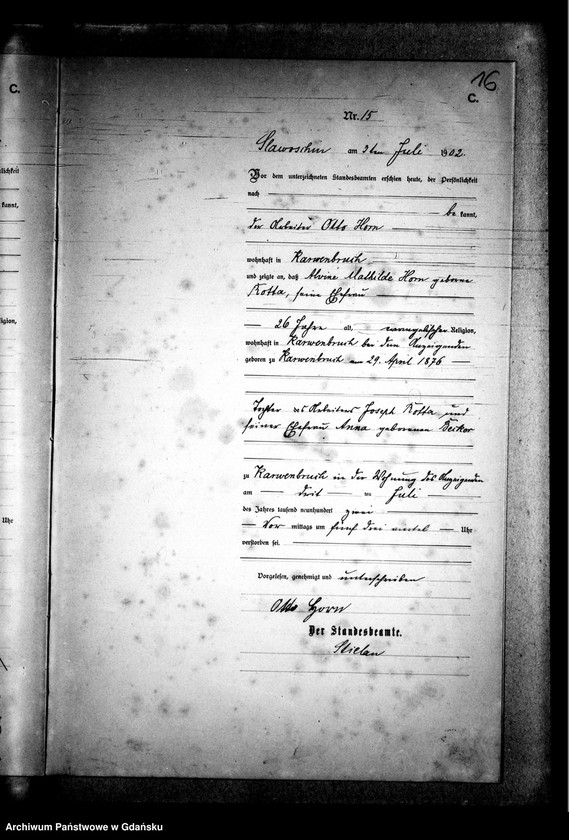 C.
16
C.
Nr. 15
Slawoschin am 3ten Juli 1902.
Vor dem unterzeichneten Standesbeamten erschien heute, der Persönlichkeit
nach
be kannt,
der Arbeiter Otto Horn
wohnhaft in Karwenbruch
und zeigte an, daß Alvine Mathilde Horn geborene
Kotta, seine Ehefrau
26 Jahre alt, evangelischer Religion,
wohnhaft in Karwenbruch bei dem Anzeigenden
geboren zu Karwenbruch am 29. April 1876
Tochter des Arbeiters Joseph Kotta und
seiner Ehefrau Anna geborenen Becker
zu Karwenbruch in der Wohnung des Anzeigenden
am ten Juli
des Jahres tausend neunhundert zwei
Vor mittags um fünf drei viertel Uhr
verstorben sei.
Vorgelesen, genehmigt und unterschrieben
Otto Horn
Der Standesbeamte.
kannt,
Uhr
Archiwum Państwowe w Gdańsku